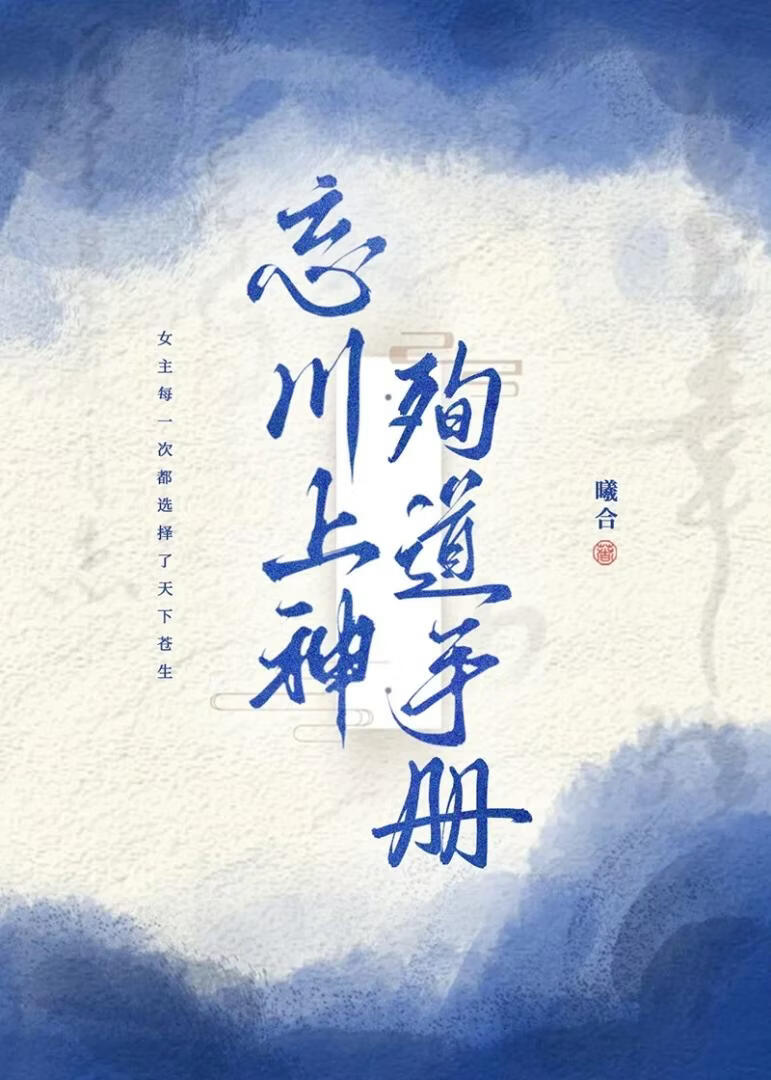 忘川上神
殉道手册
女主每一次都选择了天下苍生
曦合
著